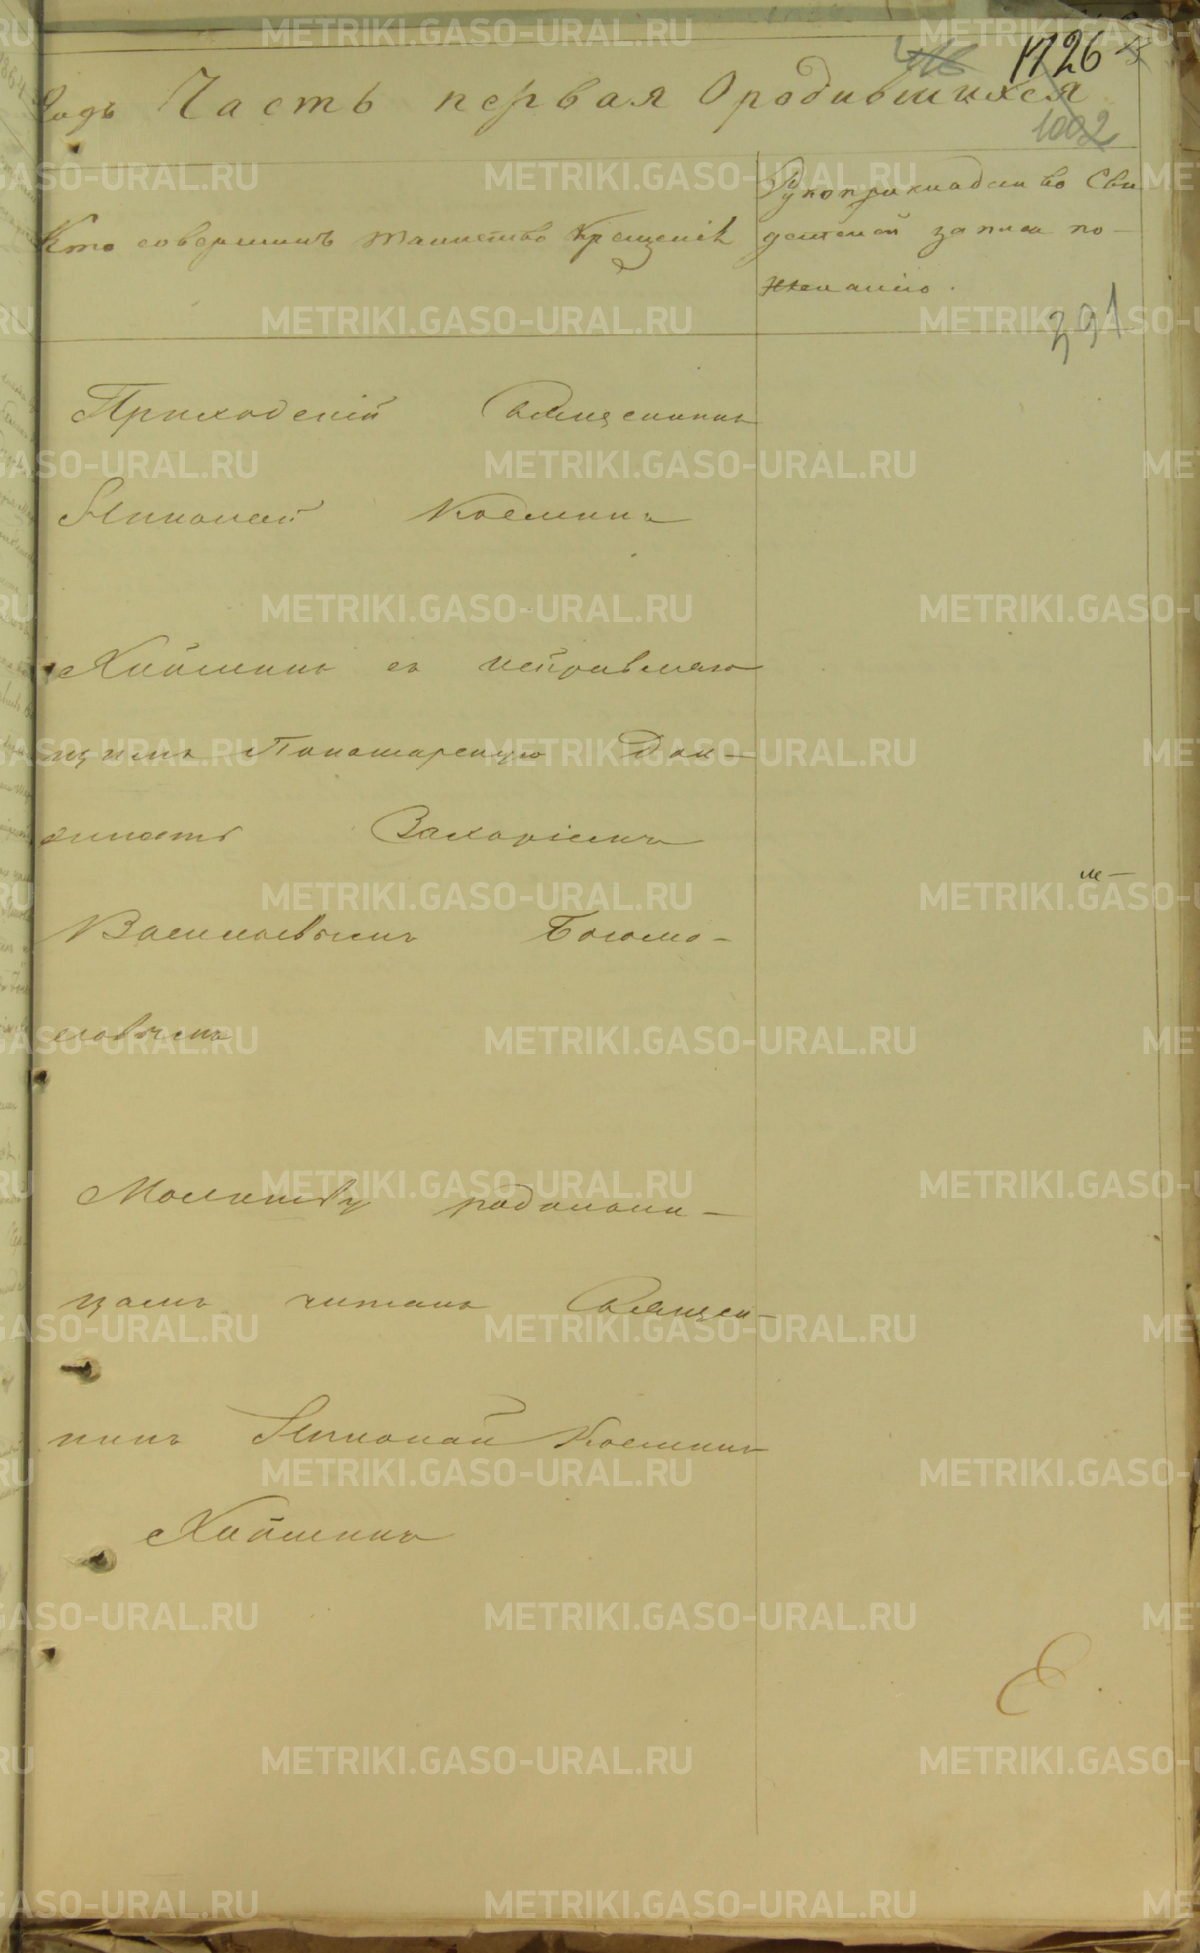 1126
годъ Часть первая О родившихся
1002
Кто совершилъ таинство крещенія
Рукоприкладство Сви
детелей записи по-
желанію.
391
Приходскій Священникъ
Николай Косминъ
съ исправляю
щимъ Пономарскую Дол-
жность Захаріемъ
Васильевымъ Богомо-
ловымъ
Молитву родильни-
цамъ читалъ Священ-
никъ Николай Косминъ